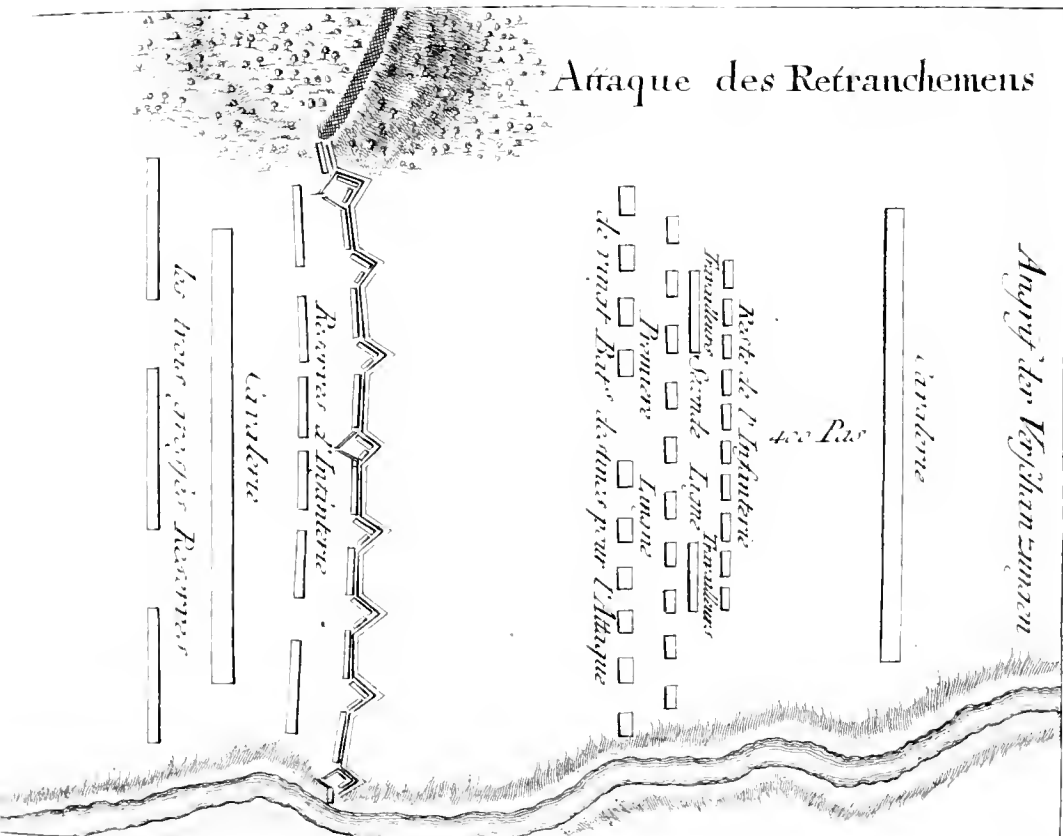 Attaque des Retranchemens
Angrif der Verschanzungen
Cavalerie
400 Pas
Reste de l'Infanterie
Travailleurs Seconde Ligne Travailleurs
Premiere Ligne
de vingt Bat.s destinés pour l'Attaque
Reserves d'Infanterie
Cavalerie
les trois grosses Reserves